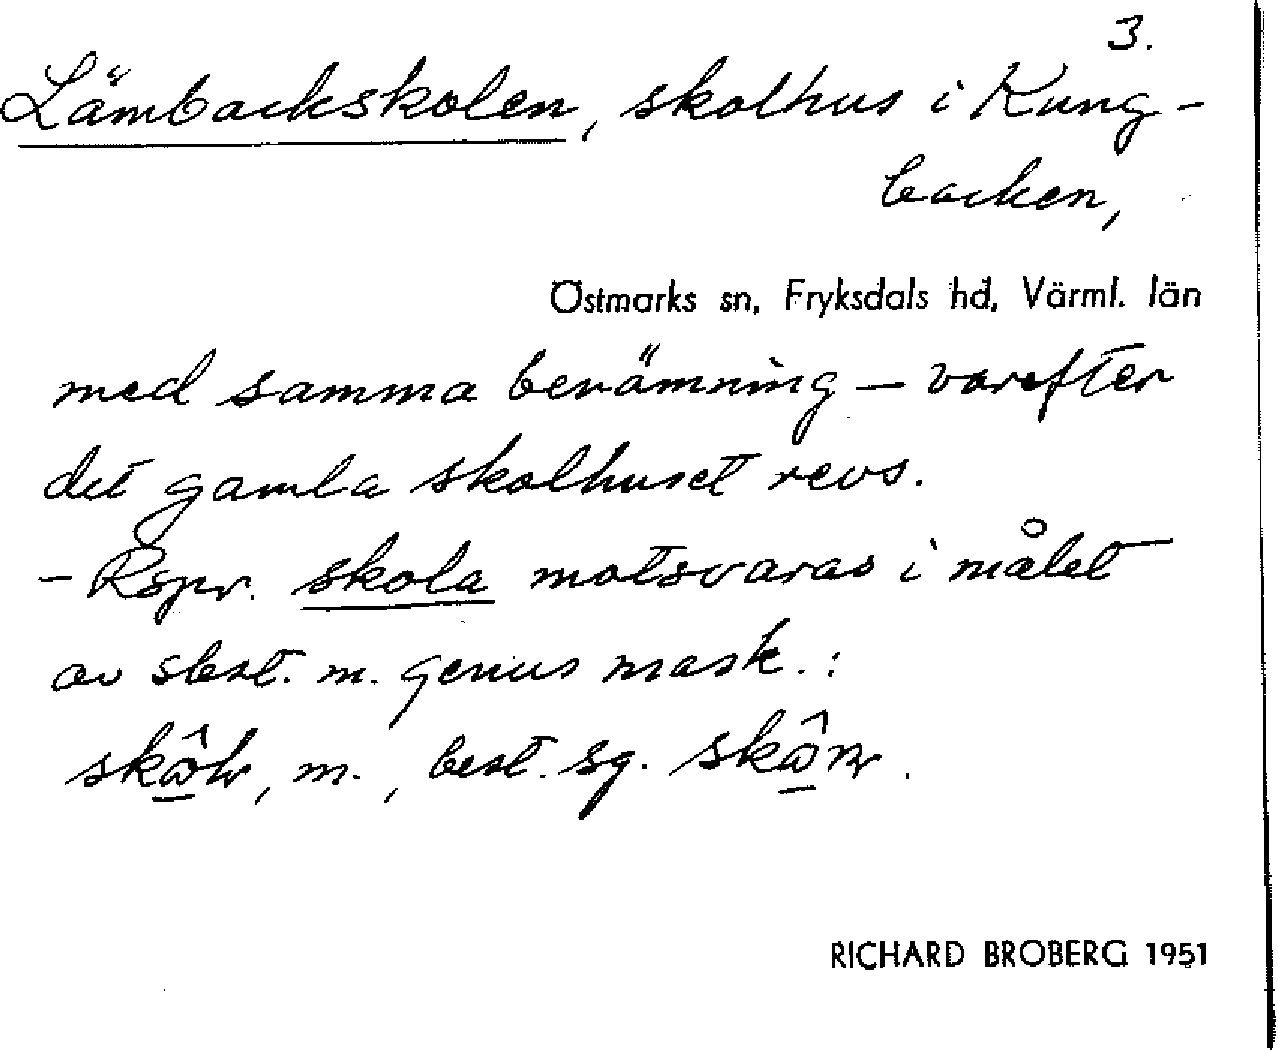 3.
Lämbackskolen, skolhus i Kung-
backen,
Östmarks sn, Fryksdals hd, Värml. län
med samma benämning – varefter
det gamla skolhuset revs.
– Rspr. skola motsvaras i målet
av sbst. m. genus mask. :
m., best. sg.
RICHARD BROBERG 1951